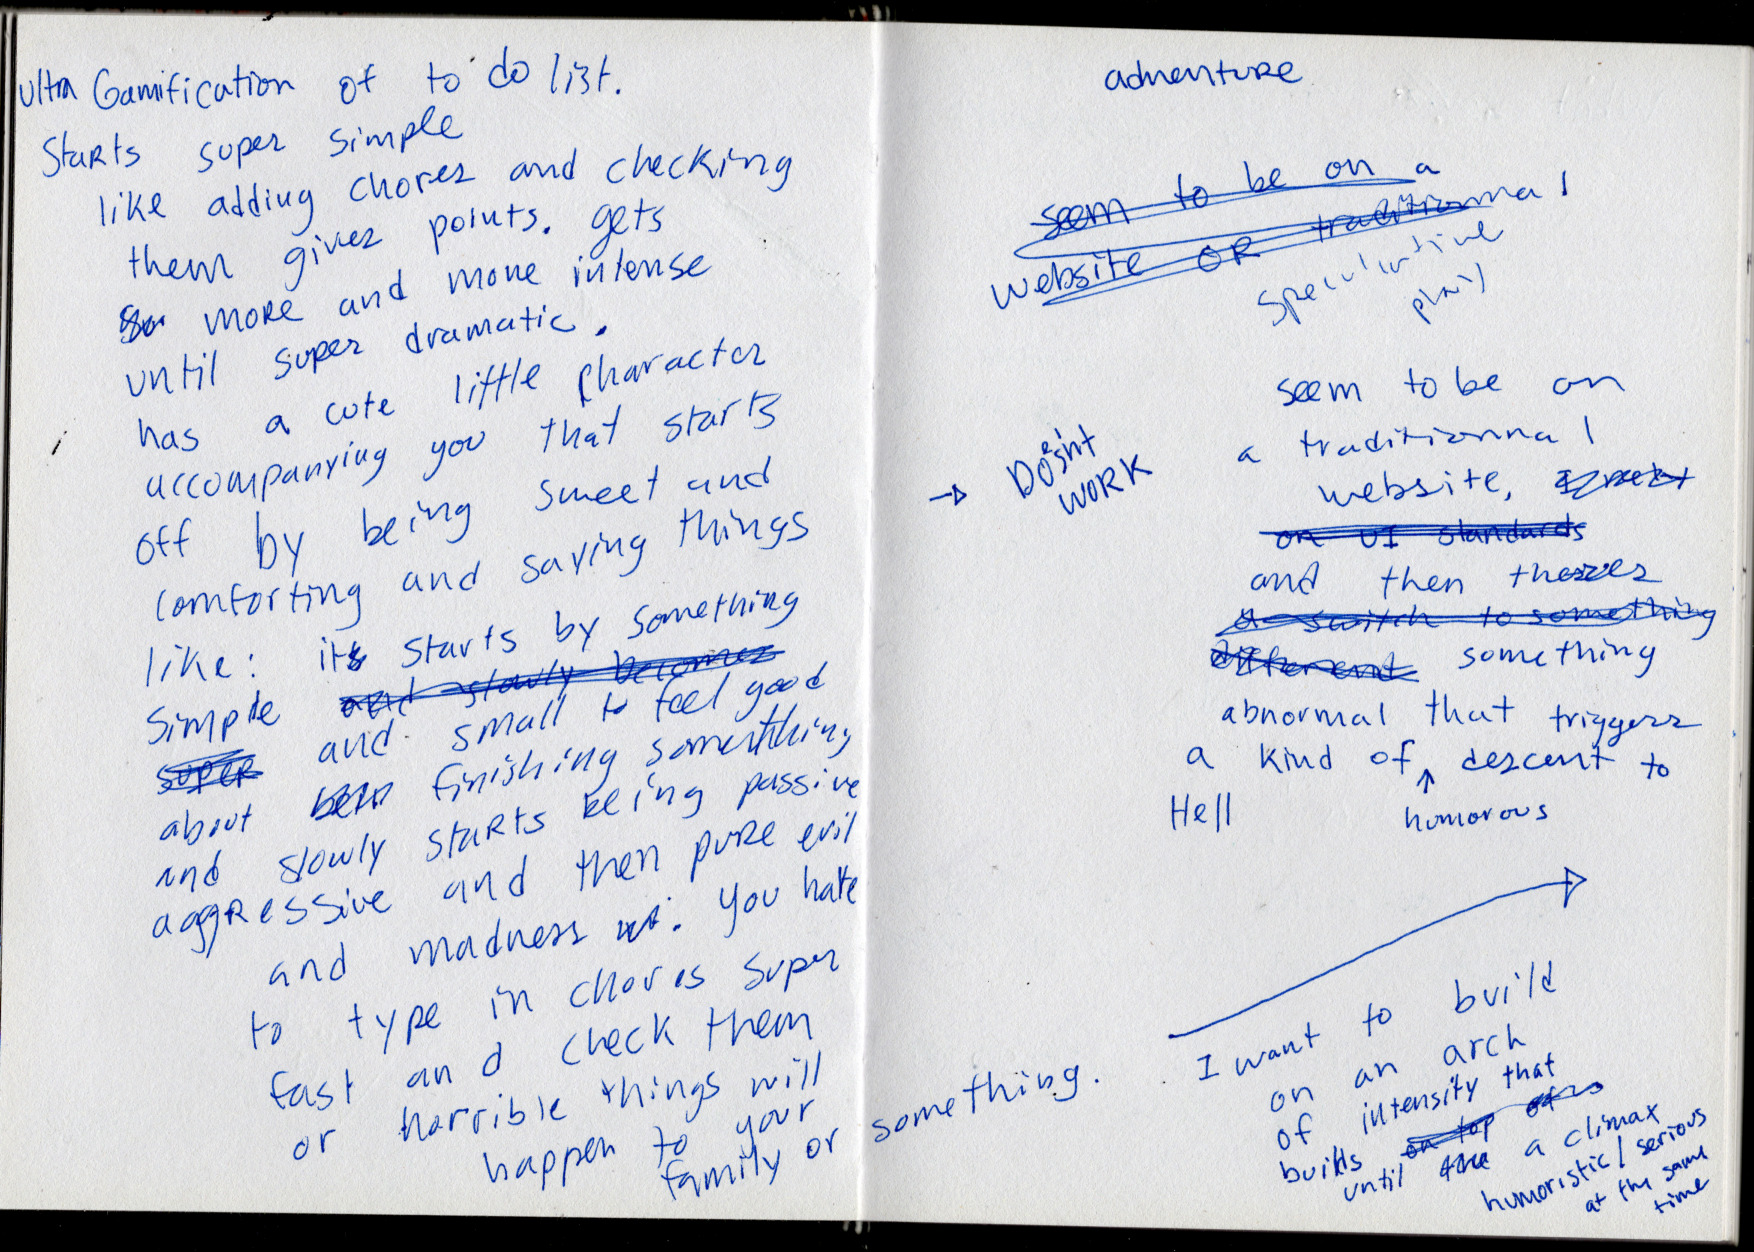 ultra Gamification of to do list.
Starts super simple
like adding chores and checking
them gives points. gets
more and more intense
until super dramatic.
has a cute little character
accompanying you that starts
off by being sweet and
comforting and saying things
like: its starts by something
simple and slowly becomes
super and small to feel good
about finishing something
and slowly starts being passive
aggressive and then pure evil
and madness. You hate
to type in chores super
fast and check them
or horrible things will
happen to your
family or something.
adventure
seem to be on a
website or traditionnal
speculative
seem to be on
a traditionnal
→ Doesn't
WORK
website,
on UI standards
and then theres
a switch to something
different something
abnormal that triggers
a kind of descent to
humorous
Hell
I want to build
on an arch
of intensity that
builds on top of
until the a climax
humoristic/serious
at the same
time